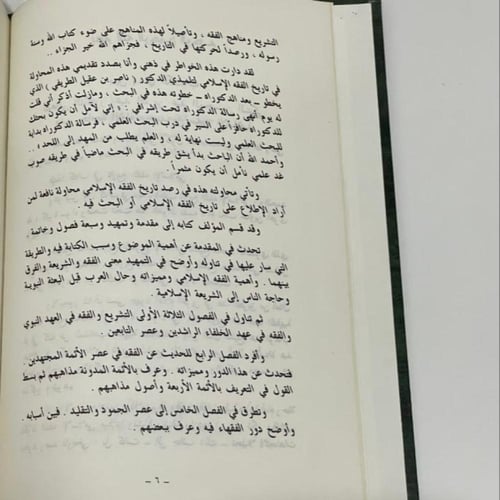 التشريع ومناهج الفقه ، وتأصيلاً لهذه المناهج على ضوء كتاب الله وسنة
رسوله ، ورصداً لحركتها في التاريخ ، فجزاهم الله خير الجزاء ..
لقد دارت هذه الخواطر في ذهني وأنا بصدد تقديمي هذه المحاولة
في تاريخ الفقه الإسلامي لتلميذي الدكتور ( ناصر بن عقيل الطريفي ) الذي
يخطو ــ بعد الدكتوراه ــ خطوته هذه في البحث ، ومازلت أذكر أني قلت
له يوم أنهى رسالة الدكتوراه تحت إشرافي : « إني لآمل أن يكون بحثك
للدكتوراه حافزاً على السير في درب البحث العلمي ، فرسالة الدكتوراه بداية
للبحث العلمي وليست نهاية له ، والعلم يطلب من المهد إلى اللحد » ..
وأحمد الله أن الباحث بدأ يشق طريقه في البحث ماضياً في طريقه صوب
غد علمي نأمل أن يكون مثمراً .
وتأتي محاولته هذه في رصد تاريخ الفقه الإسلامي محاولة نافعة لمن
أراد الإطلاع على تاريخ الفقه الإسلامي أو البحث فيه .
وقد قسم المؤلف كتابه إلى مقدمة وتمهيد وسبعة فصول وخاتمة .
تحدث في المقدمة عن أهمية الموضوع وسبب الكتابة فيه والطريقة
التي سار عليها في تناوله وأوضح في التمهيد معنى الفقه والشريعة والفرق
بينهما . وأهمية الفقه الإسلامي ومميزاته وحال العرب قبل البعثة النبوية
وحاجة الناس إلى الشريعة الإسلامية .
ثم تناول في الفصول الثلاثة الأولى التشريع والفقه في العهد النبوي
والفقه في عهد الخلفاء الراشدين وعصر التابعين .
وأفرد الفصل الرابع للحديث عن الفقه في عصر الأئمة المجتهدين .
فتحدث عن هذا الدور ومميزاته . وعرف بالأئمة المدونة مذاهبهم ثم بسط
القول في التعريف بالأئمة الأربعة وأصول مذاهبهم .
وتطرق في الفصل الخامس إلى عصر الجمود والتقليد . فبين أسبابه
وأوضح دور الفقهاء فيه وعرف ببعضهم .
ــ ٦ ــ